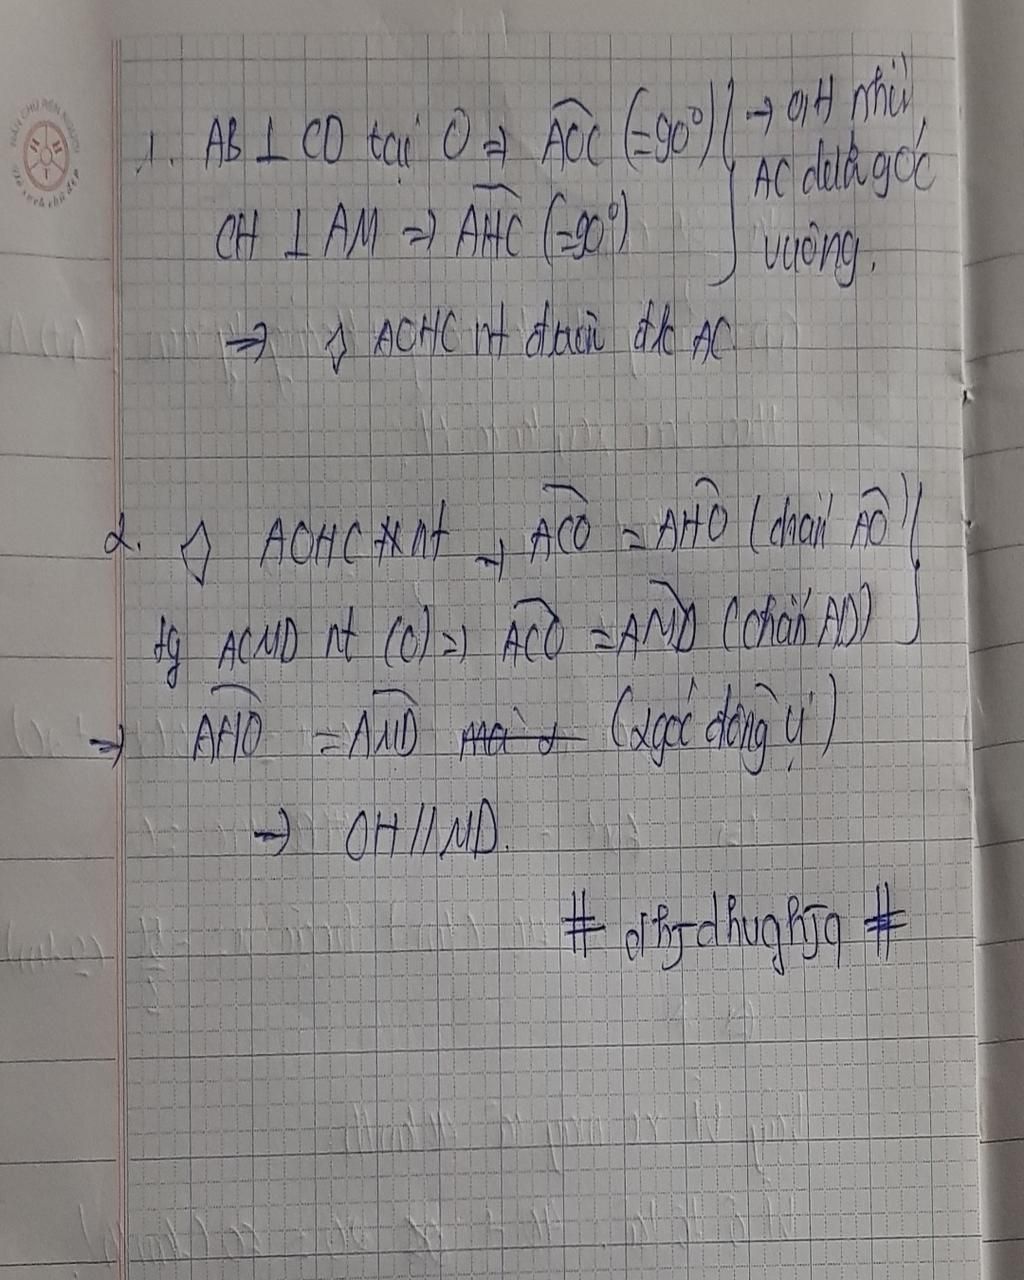 1. AB ⊥ CD tại O ⇒ AOC (=90°) → O,H nhìn
AC dưới góc
CH ⊥ AM ⇒ AHC (=90°) vuông.
⇒ ◊ AOHC nt đtròn đk AC
2. ◊ AOHC nt → ACO = AHO (chắn AO)
tg ACMD nt (O) ⇒ ACO = AMD (chắn AD)
⇒ AHO = AMD (2 góc đồng vị)
→ OH // MD.
# #